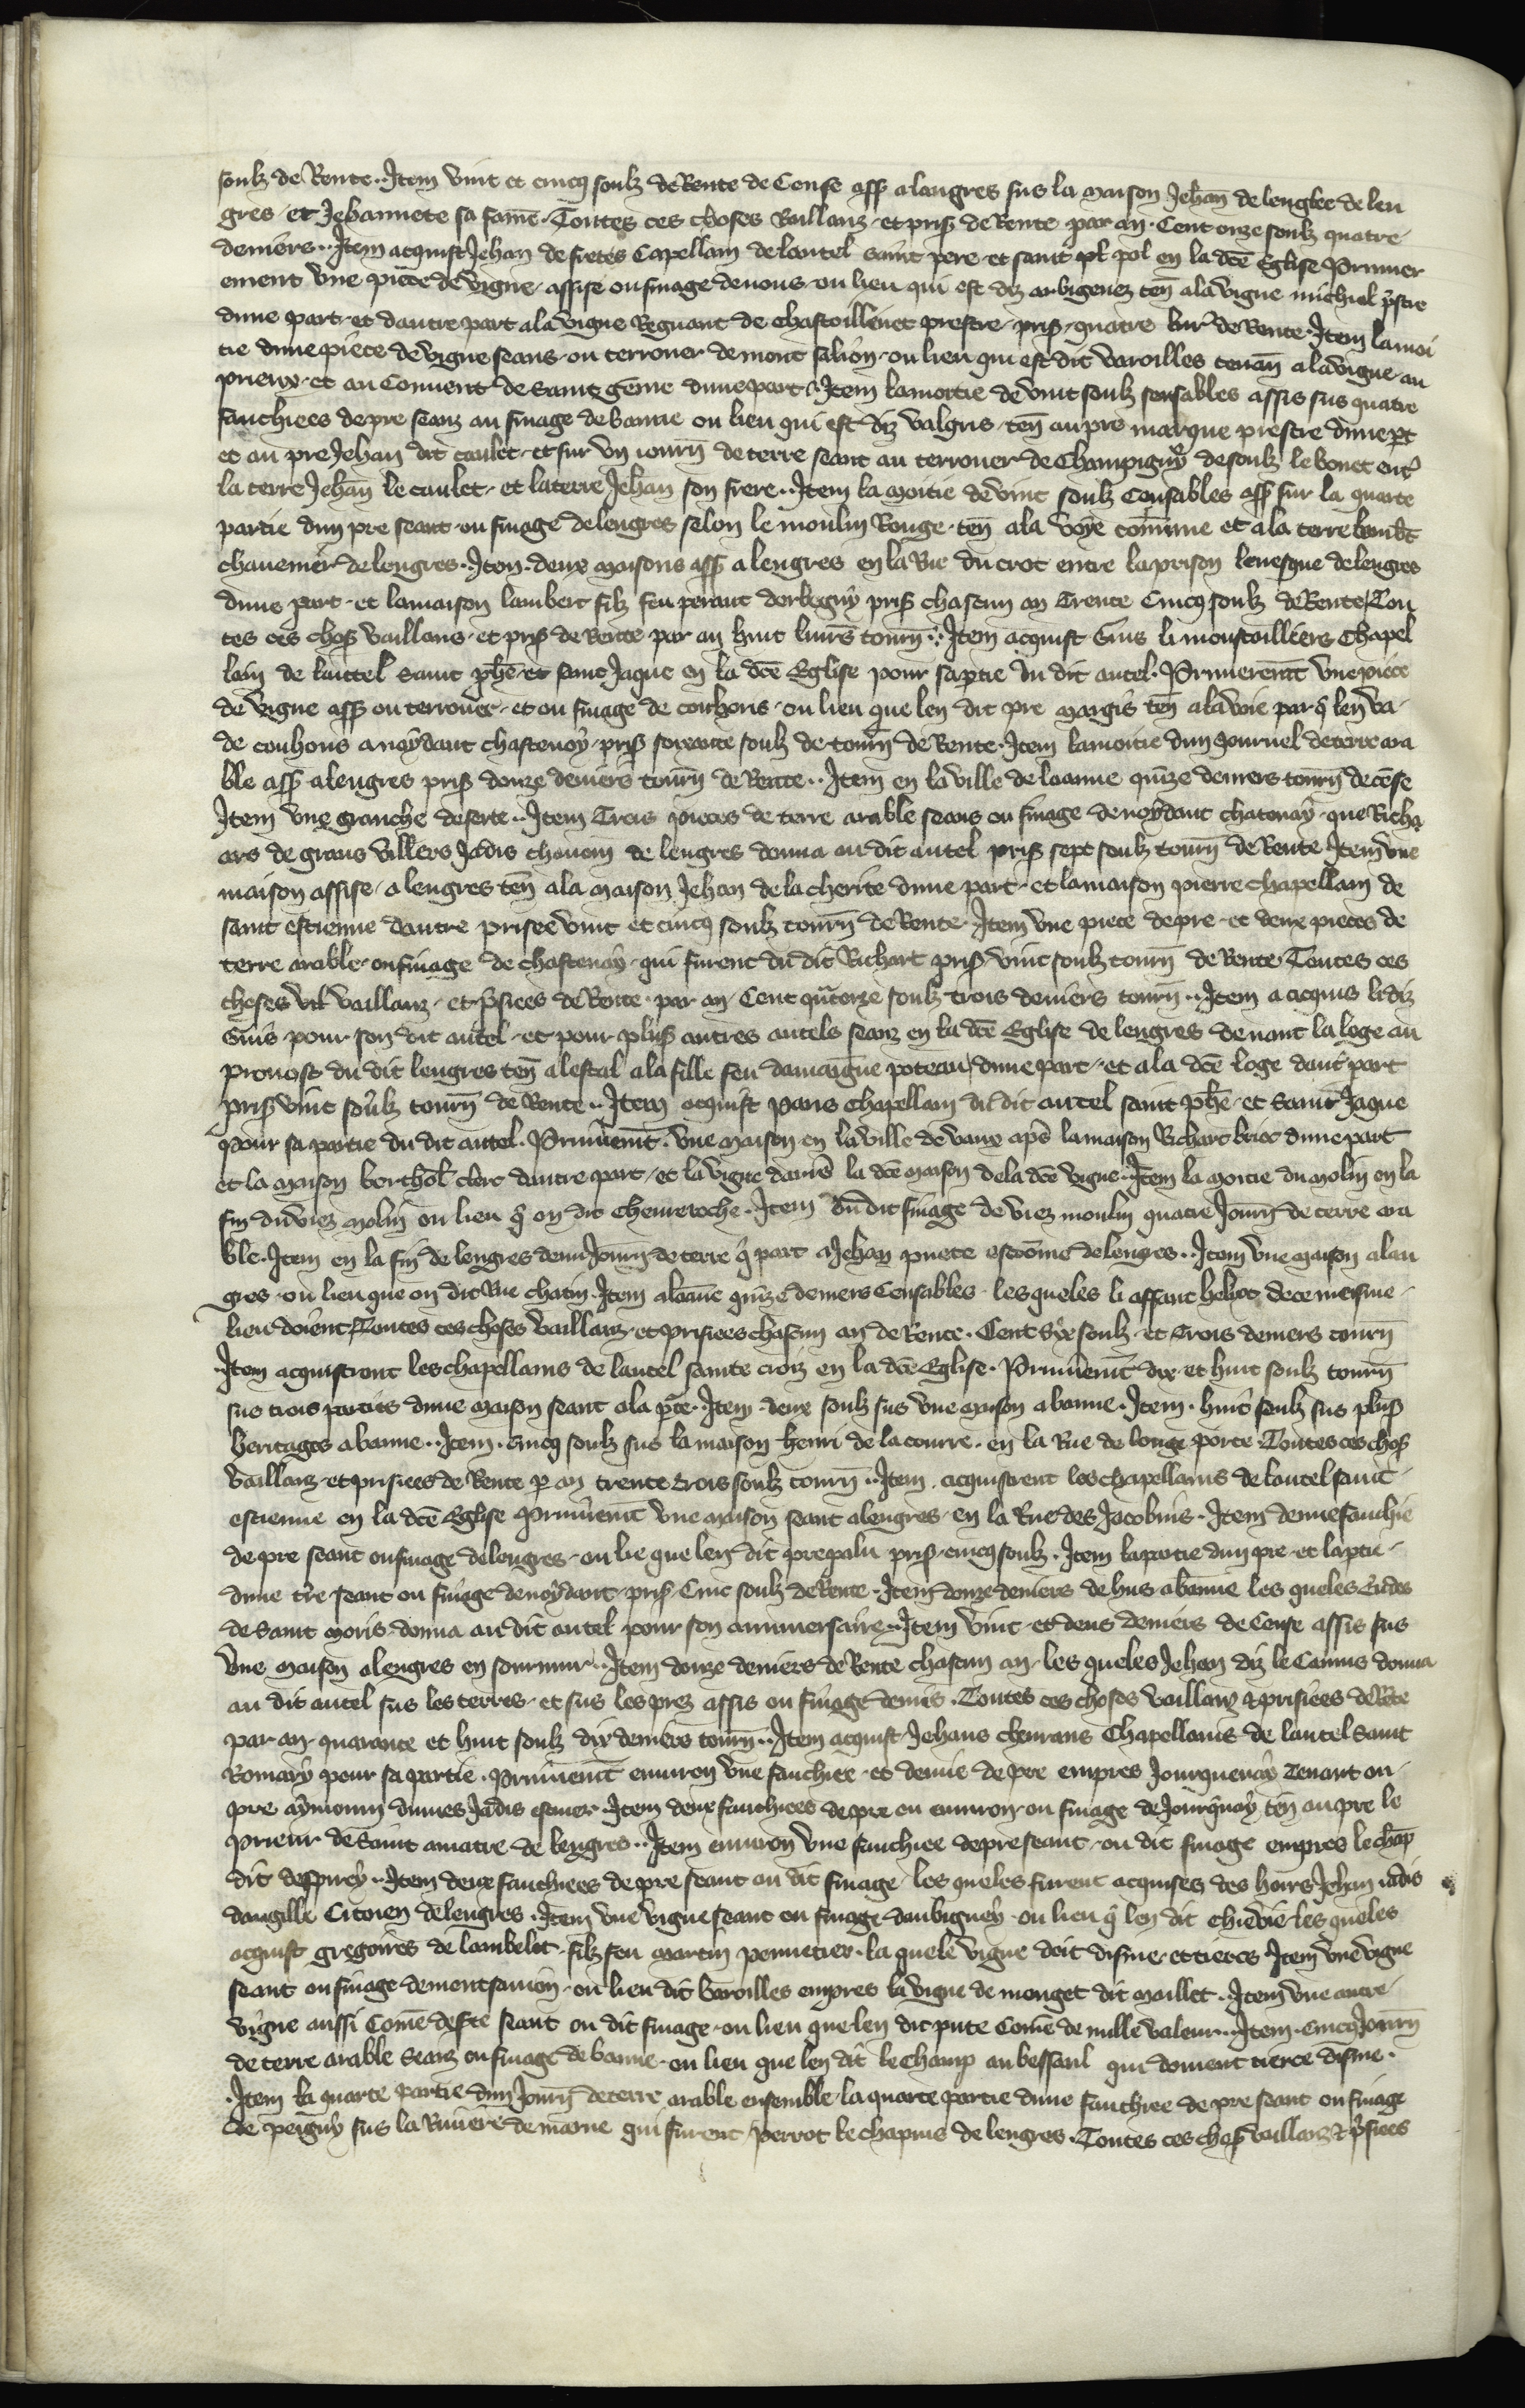 soulz de Rente.. Item vint et cincq soulz de Rente de Cense ass̃ a langres sus la maison Jehañ de lenglec de len
gres et Jehannete sa fame. Toutes ces choses vaillanz et pris̃ de Rente par an. Cent onze soulz quatre
deniers.. Item acquist Jehan de fretes Capellain de lautel saint pere et saint pl pol en la dc̃e Eglise Primier
ement vne piece de vigne assise ou finage de nous ou lieu qui est diz arbigenez teñ a la vigne michiel p̃stre
dune part et dautre part a la vigne Regnaut de chastoillenet prestre pris̃ quatre liur̃ de Rente. Item la moi
tie dune piece de vigne seans ou terrouer de mont salion ou lieu qui est dit varoilles tenañ a la vigne au
prieux et au Couuent de saint geme dune part. Item la moitie de vint soulz sensables assis sus quatre
fauchiees de pre seanz au finage de banne ou lieu qui est diz valgris teñ au pre marque prestre dune p̃t
et au pre Jehan dit caulet et sur vn iourñ de terre seant au terrouer de Champigny desoulz le bonet ent̃
la terre Jehañ le caulet et la terre Jehan son frere.. Item la moitie de vint soulz Censables ass̃ sur la quarte
partie dun pre seant ou finage de lengres selon le moulin Rouge teñ a la voye com̃une et a la terre lamb̃t
chauemer de lengres. Item deux maisons ass̃ a lengres en la Rue du crot entre la prison leuesque de lengres
dune part et la maison lambert filz feu perant dorbigny pris̃ chascun an Trente Cincq soulz de Rente Tou
tes ces chos̃ vaillans et pris̃ de Rente par an huit liures tourñ.. Item acquist Guis li moustailliers Chapel
lain de lautel saint ph̃e et saint Jaque en la dc̃e Eglise pour sa p̃tie du dit autel. Primerem̃t vne piece
de vigne ass̃ ou terrouer et ou finage de couhons ou lieu que len dit pre margis teñ a la voie par q̃ len va
de couhons a noydant chastenoy pris̃ soixante soulz de tourñ de Rente. Item la moitie dun Journel de terre ara
ble ass̃ a lengres pris̃ douze deniers tourñ de Rente.. Item en la ville de loanne quize deniers tourñ de cese
Item vne granche deserte.. Item Trois pieces de terre arable seans ou finage de noydant chatenay que Richa
ars de grans villers Jadis chenoin de lengres donna au dit autel pris̃ sept soulz tourñ de Rente Item vne
maison assise a lengres teñ a la maison Jehan de la cherite dune part et la maison pierre chapellain de
saint estienne dautre prisee vint et cincq soulz tourñ de Rente. Item vne piece de pre et deux pieces de
terre arable ou finage de chastenay qui furent du dit Richart pris̃ vint soulz tourñ de Rente Toutes ces
choses vaillanz et p̃siees de Rente par an Cent q̃torze soulz trois deniers tourñ.. Item a acquis li diz
Guis pour son dit autel et pour plus̃ autres autels seanz en la dc̃e Eglise de lengres deuant la loge au
prouost du dit lengres teñ a lestal a la fille feu damaigne poteau dune part et a la dc̃e loge daut̃ part
pris̃ vint soulz tourñ de Rente.. Item acquist Paris chapellain du dit autel saint ph̃e et saint Jaque
pour sa partie du dit autel. Primeremt̃. vne maison en la ville de vaux ap̃s la maison Richart brioc dune part
et la maison berthol̃ clerc dautre part et la vigne darrẽs la dc̃e maison de la dc̃e vigne. Item la moitie du molin en la
fin du viez molin ou lieu q̃ on dit Cheueroche. Item ou dit finage de viez moulin quatre Jourñ de terre ara
ble. Item en la fin de lengres demi Jourñ de terre q̃ part a Jehan puete escõme de lenges.. Item vne maison a lan
gres ou lieu que on dit Rue chatin. Item a loanne quize deniers Censables les queles li effant hebert de ce meisme
lieu doient Toutes ces choses vaillanz et prisiees chascun an de Rente. Cent Sexe soulz et Trois deniers tourñ
Item acquistrent les chapellains de lautel sainte croiz en la dc̃e Eglise. Primeremt̃ dix et huit soulz tourñ
sus trois parties dune maison seant a la p̃te. Item deux soulz sus vne maison a banne. Item huit soulz sus plus̃
heritages a banne.. Item. Cincq soulz sus la maison henri de la courre en la Rue de longe porte Toutes ces chos̃
vaillanz et prisiees de Rente p an trente trois soulz tourñ.. Item acquistrent les chapellains de lautel saint
estienne en la dc̃e Eglise Primeremt̃ vne maison seant a lengres en la Rue des Jacobins. Item demie fauchie
de pre seant ou finage de lengres ou lie que len dit pre palu pris̃ cincq soulz. Item la partie dun pre et la p̃tie
dune tr̃e seant ou finage de noydant pris̃ Cinc soulz de Rente. Item douze deniers de hus a banne les queles Eudes
de saint moris donna au dit autel pour son anniuersaire.. Item vint et deus deniers de Cense assis sus
vne maison a lengres en sourmur.. Item douze deniers de Rente chascun an les queles Jehan diz le Camus donna
au dit autel sus les terres et sus les prez assis ou finage demes. Toutes ces choses vaillanz et prisiees de Rẽte
par an quarante et huit soulz dix deniers tourñ.. Item acquist Jehans cheurans Chapellains de lautel saint
Romary pour sa partie. Primeremt̃ enuiron vne fauchiee et demie de pre empres Jourquenay Tenant ou
pre aymonin dunes Jadis escuier. Item deux fauchiees de pre ou enuiron ou finage de Jourq̃nay teñ au pre le
prieur de saint amatre de lengres.. Item enuiron vne fauchiee de pre seant ou dit finage empres le chãp
dit despincy.. Item deux fauchiees de pre seant ou dit finage les queles furent acquises des hoirs Jehan iadis
daugille Citoien de lengres. Item vne vigne seant ou finage daubigney ou lieu q̃ len dit chieuie les queles
acquist gregoires de lambelet filz feu martin pennetier la quele vigne doit disme et tierces Item vne vigne
seant ou finage de montsauion ou lieu dit varoilles empres la vigne de monget dit maillet. Item vne autre
vigne aussi Come deserte seant ou dit finage ou lieu que len dit pute Come de nulle valeur.. Item. Cincq Jourñ
de terre arable seanz ou finage de banne ou lieu que len dit le Champ au bessarl qui doiuent tierce disme.
Item la quarte partie dun Jourñ de terre arable ensemble la quarte partie dune fauchiee de pre seant ou finage
de peigny sus la Riuiere de marne qui furent Perrot le chapuis de lengres. Toutes ces chos̃ vaillanz et p̃siees